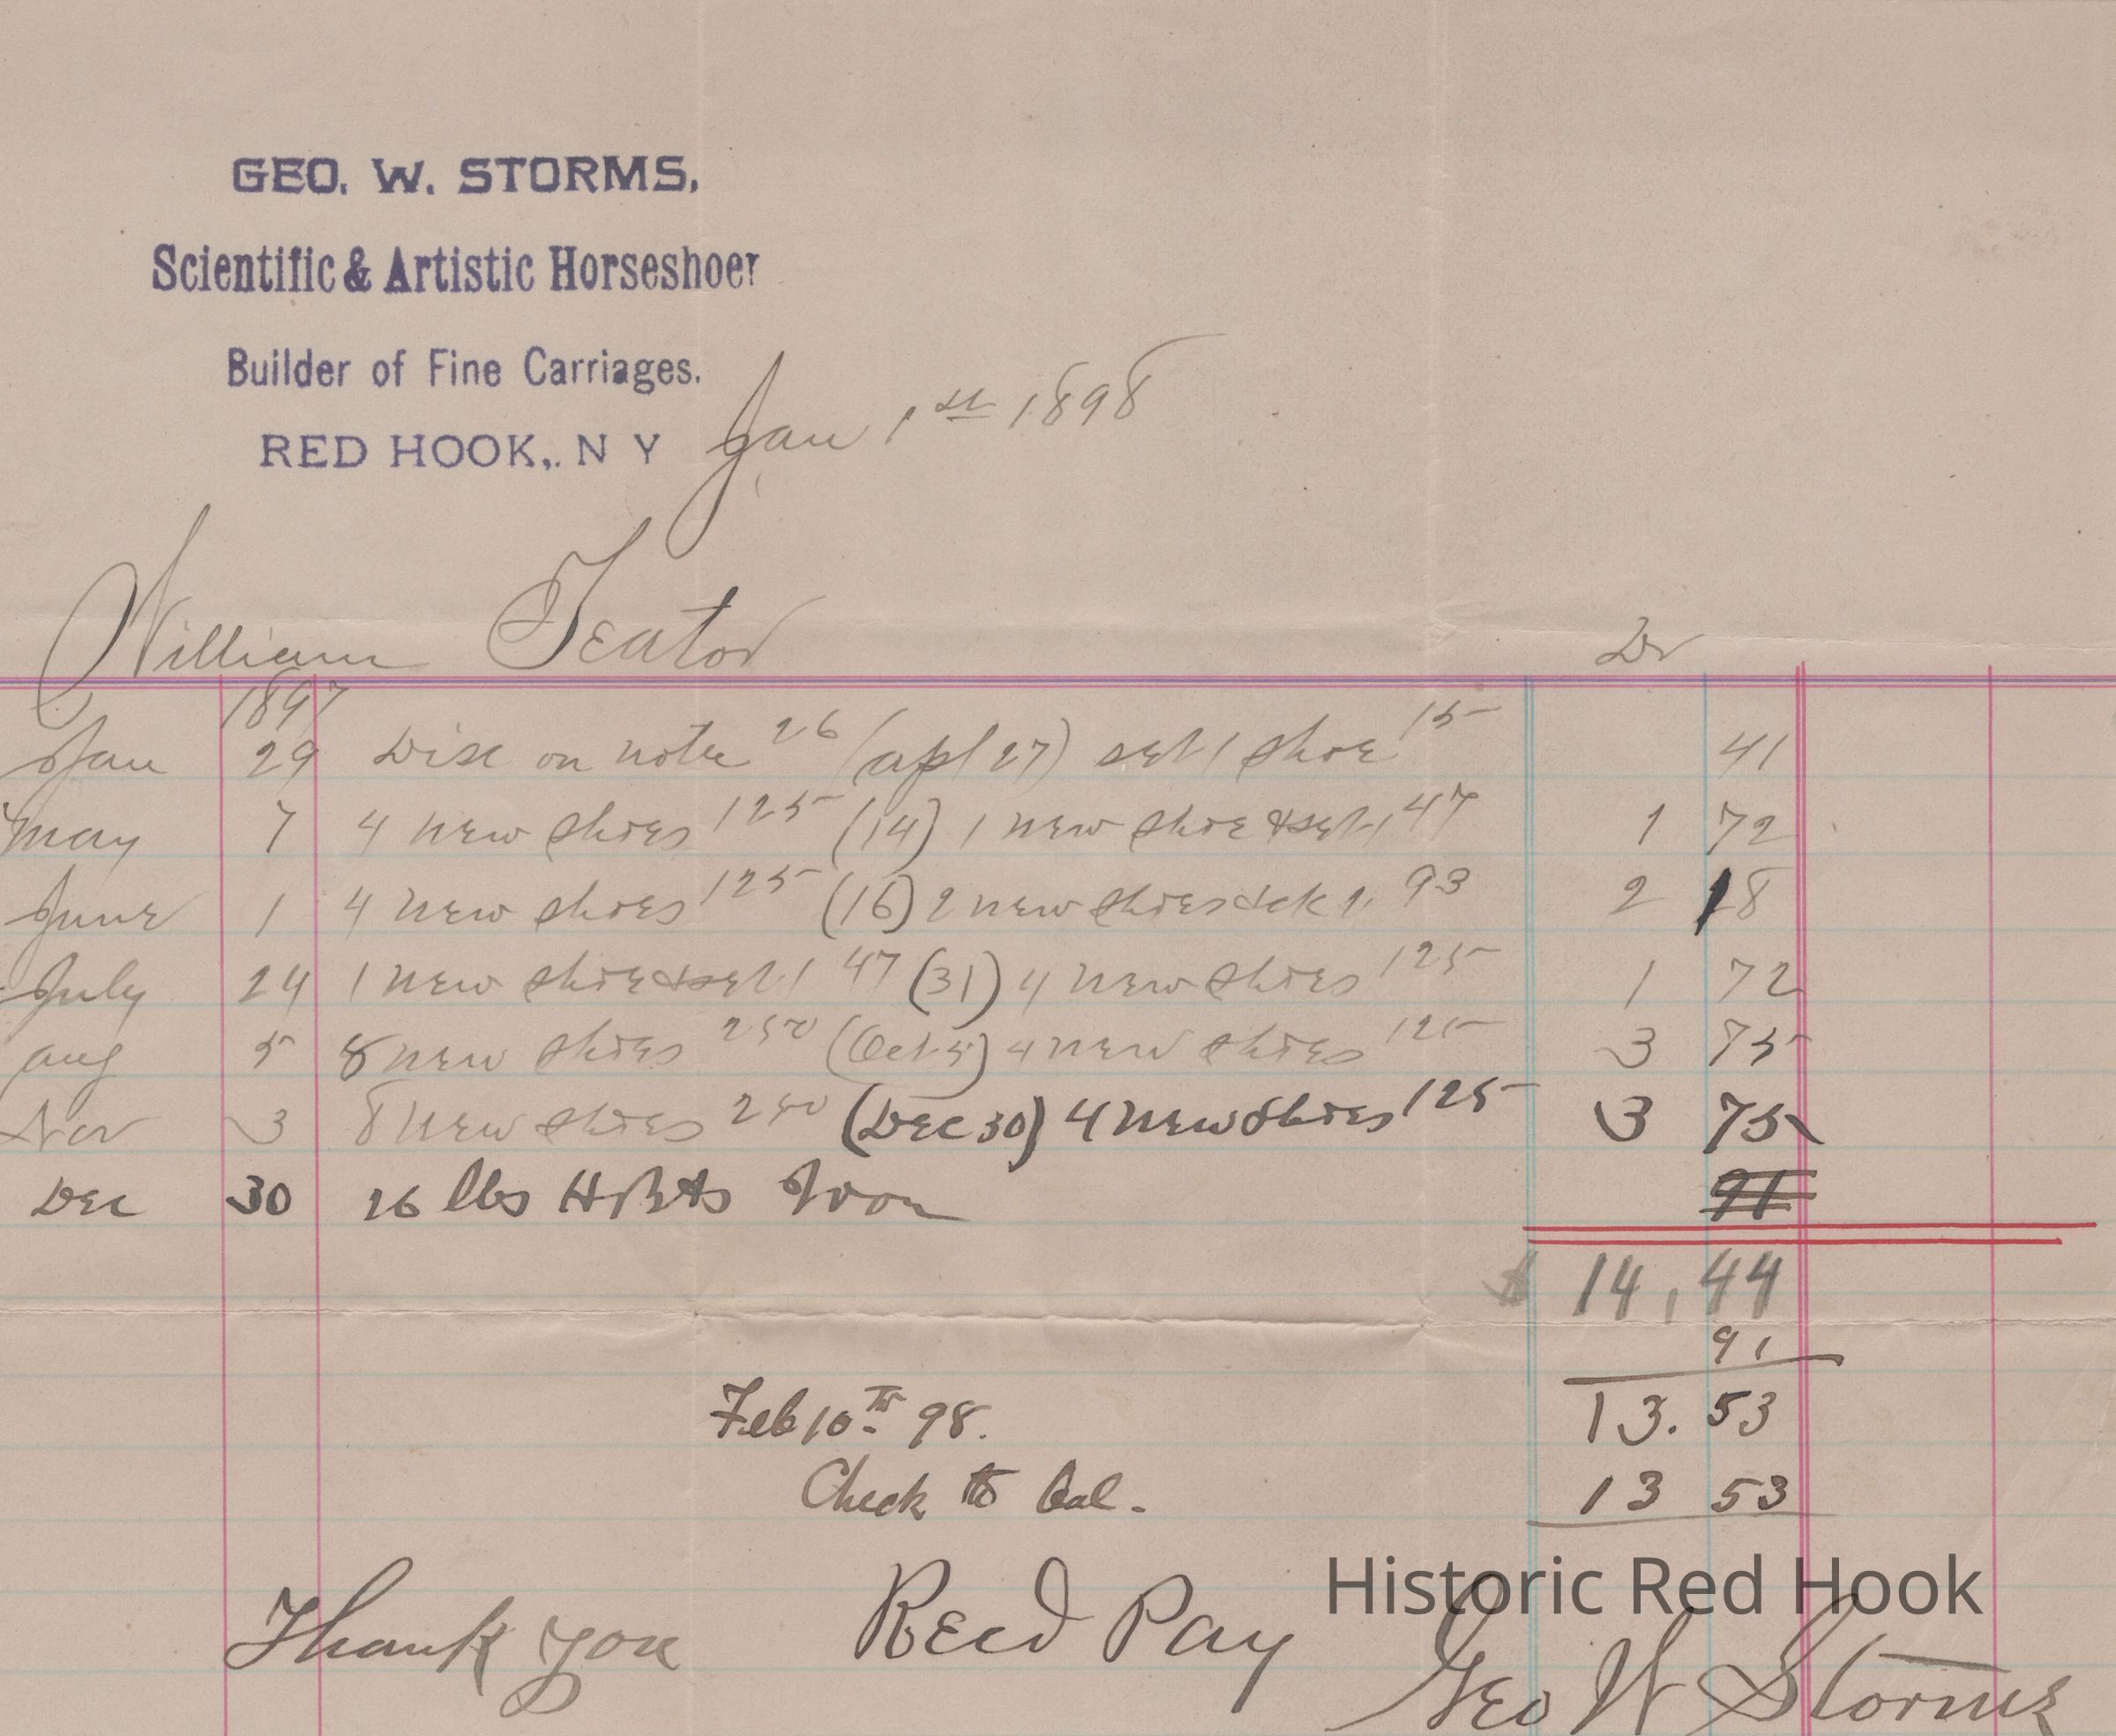 GEO. W. STORMS,
Scientific & Artistic Horseshoer
Builder of Fine Carriages.
RED HOOK,. N Y Jan 1st 1898
William Teator Dr
1897
Jan 29 Disc on note 26 (apl 27) set 1 shoe 15 41
May 7 4 new shoes 125 (14) 1 new shoe & set 1 47 1 72
June 1 4 new shoes 125 (16) 2 new shoes & 93 2 18
July 24 1 new shoe & set 1 47 (31) 4 new shoes 125 1 72
aug 5 8 new shoes 250 (Oct 5) 4 new shoes 125 3 75
Nov 3 8 new shoes 250 (Dec 30) 4 new shoes 125 3 75
Dec 30 26 lbs Iron 91
$ 14,44
91
13.53
Feb 10th 98.
Check to bal. 13 53
Thank you Recd Pay
Historic Red Hook
Geo W Storms